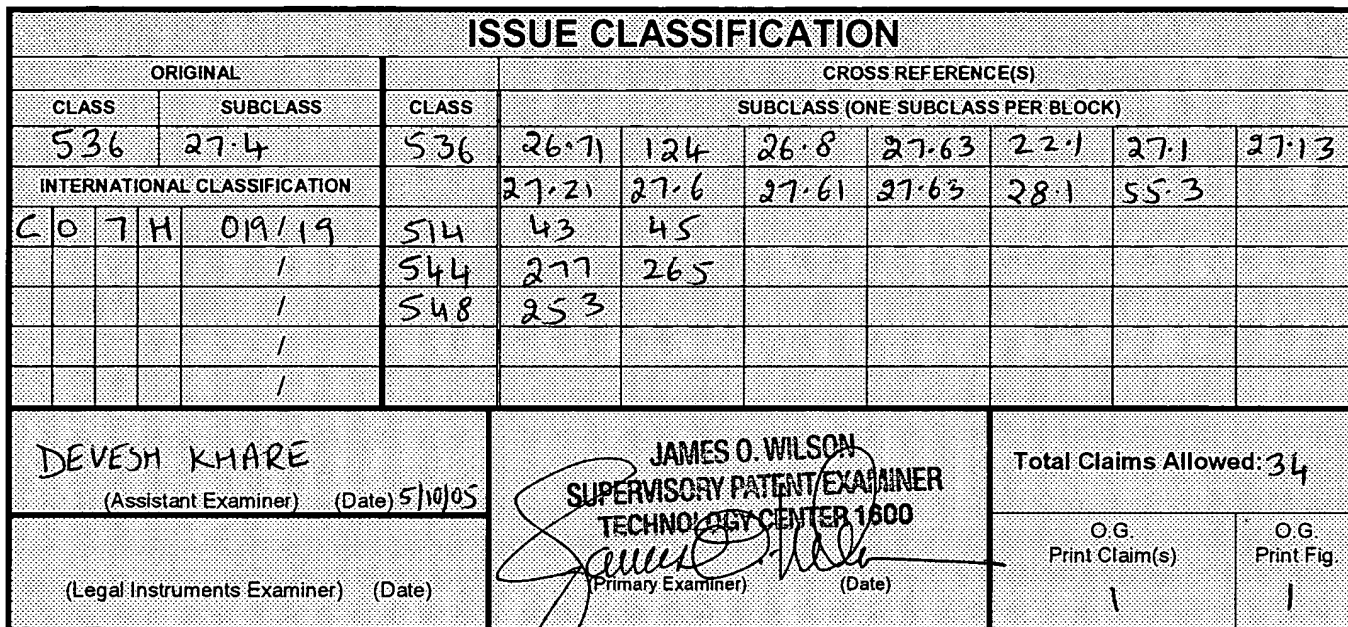 ISSUE CLASSIFICATION
ORIGINAL CROSS REFERENCE(S)
CLASS SUBCLASS CLASS SUBCLASS (ONE SUBCLASS PER BLOCK)
536 27.4 536 26.71 124 26.8 27.63 22.1 27.1 27.13
INTERNATIONAL CLASSIFICATION 27.21 27.6 27.61 27.63 28.1 55.3
C 0 7 H 019/19 514 43 45
/ 544 277 265
/ 548 253
/
/
DEVESH KHARE
(Assistant Examiner) (Date) 5/10/05
JAMES O. WILSON
SUPERVISORY PATENT EXAMINER
TECHNOLOGY CENTER 1600
James O. Wilson
(Primary Examiner) (Date)
Total Claims Allowed: 34
(Legal Instruments Examiner) (Date)
O.G.
Print Claim(s)
1
O.G.
Print Fig.
1